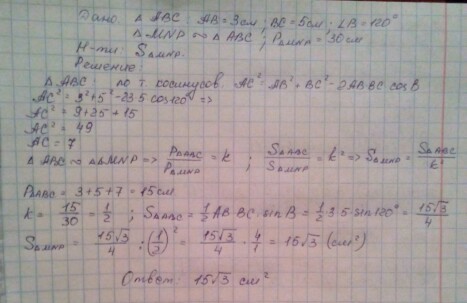 Дано: △ ABC: AB = 3см; BC = 5см; ∠B = 120°
△MNP ∾ △ABC; P△MNP = 30см
Н-ти: S△MNP.
Решение:
△ ABC: по т. косинусов. AC² = AB² + BC² - 2AB·BC cosB
AC² = 3² + 5² - 2·3·5 cos120° =>
AC² = 9 + 25 + 15
AC² = 49
AC = 7
△ ABC ∾ △MNP => P△ABC/P△MNP = k ; S△ABC/S△MNP = k² => S△MNP = S△ABC/k²
P△ABC = 3 + 5 + 7 = 15см
k = 15/30 = 1/2 ; S△ABC = 1/2 AB·BC·sinB = 1/2·3·5·sin120° = 15√3/4
S△MNP = 15√3/4 : (1/2)² = 15√3/4 · 4/1 = 15√3 (см²)
Ответ: 15√3 см²